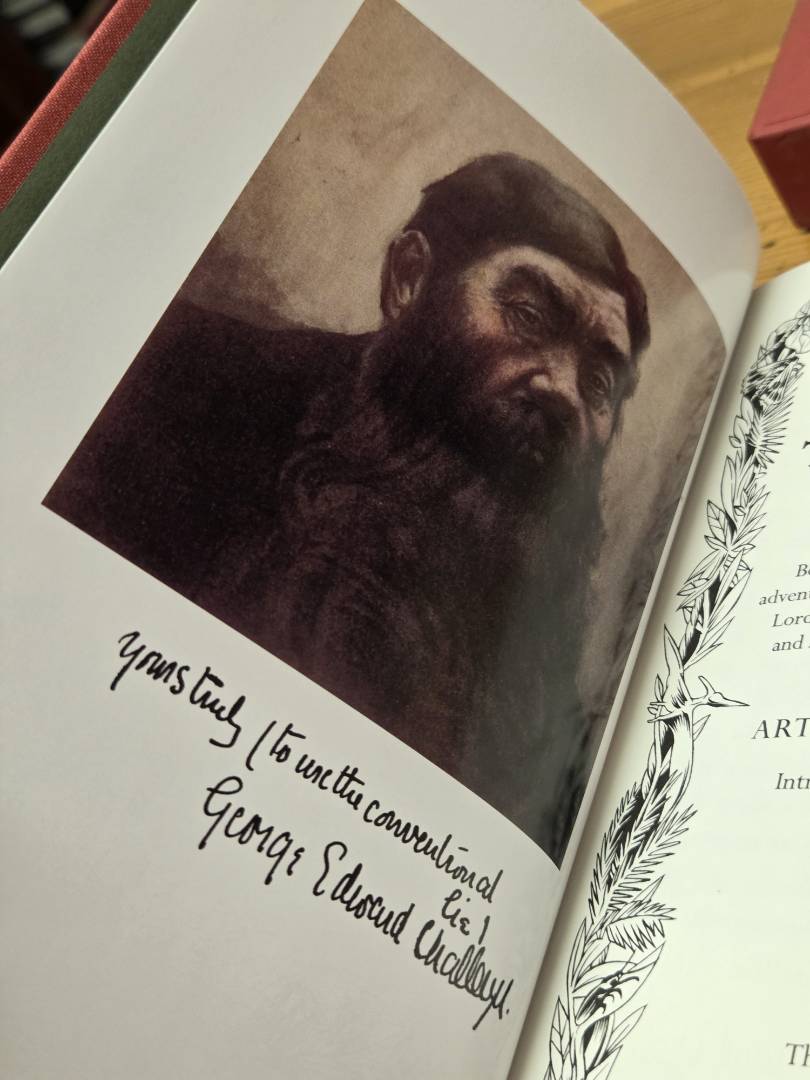 yours truly (to use the conventional
lie)
George Edward Challenger.
T
B
adven
Lord
and
ART
Intr
Th